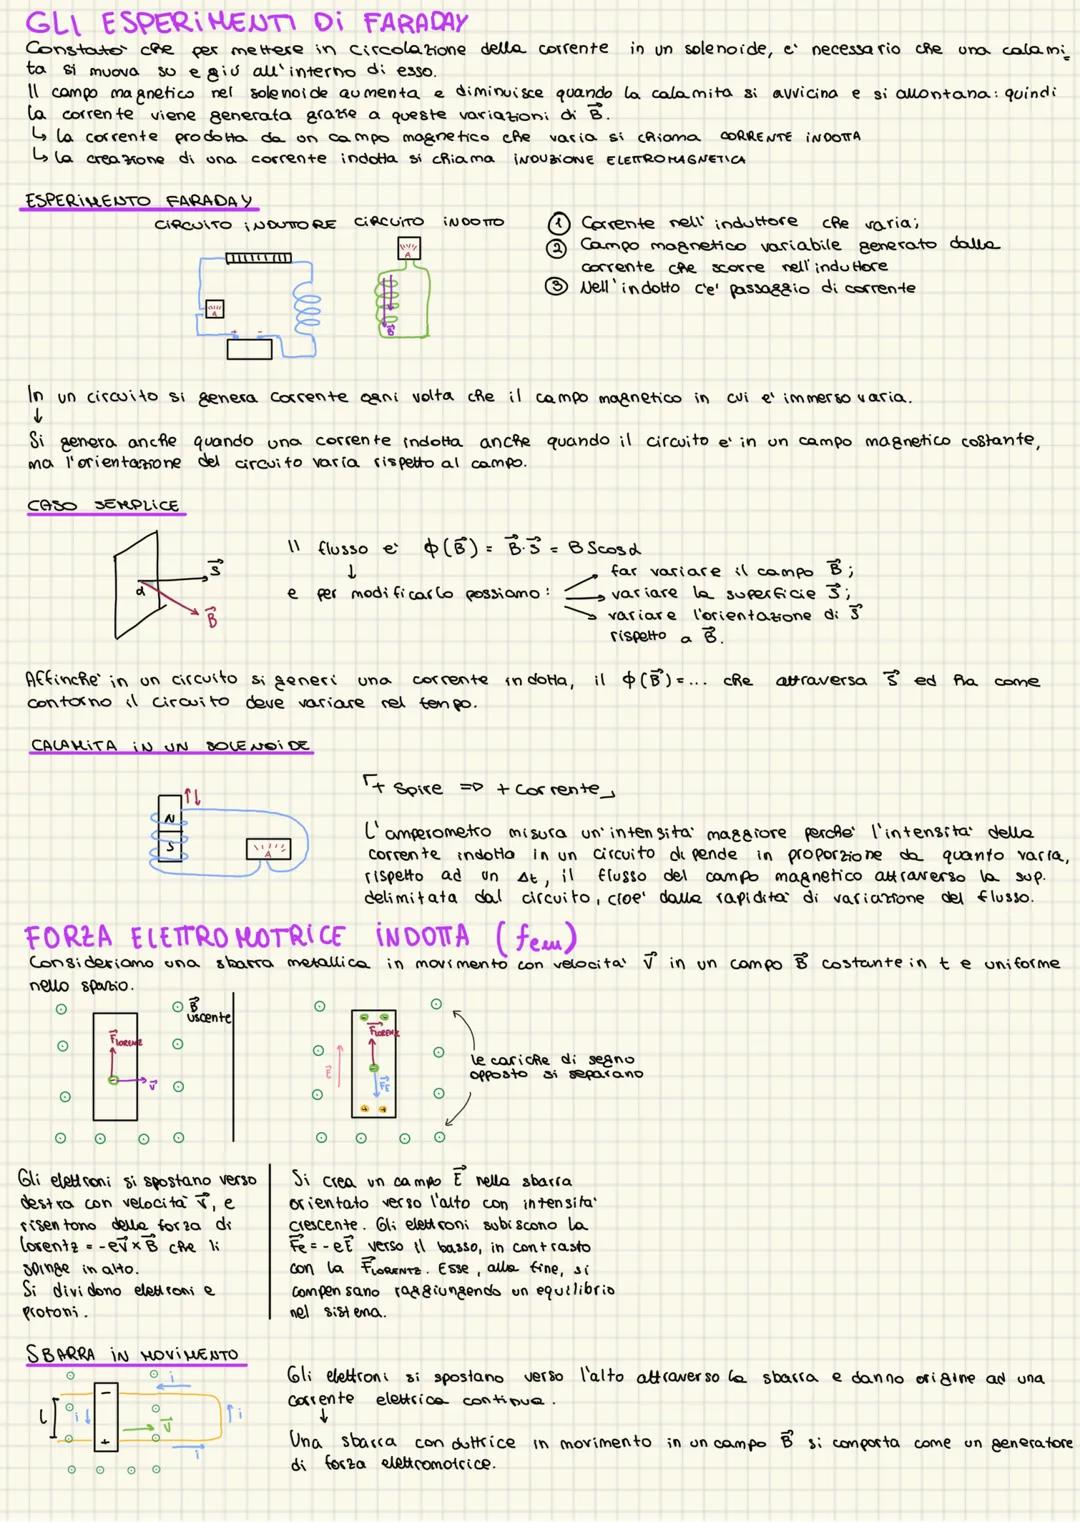 GLI ESPERIMENTI Di FARADAY
Constato' che per mettere in circolazione della corrente in un solenoide, e' necessario che una calami_
ta si muova su e giu' all'interno di esso.
Il campo magnetico nel solenoide aumenta e diminuisce quando la calamita si avvicina e si allontana: quindi
la corrente viene generata grazie a queste variazioni di B.
↳ la corrente prodotta da un campo magnetico che varia si chiama CORRENTE INDOTTA
↳ la creazione di una corrente indotta si chiama INDUZIONE ELETTROMAGNETICA
ESPERIMENTO FARADAY
CIRCUITO INDUTTORE CIRCUITO INDOTTO
A
A
+ -
B
① Corrente nell' induttore che varia;
② Campo magnetico variabile generato dalla
corrente che scorre nell'induttore
③ Nell'indotto c'e' passaggio di corrente
In un circuito si genera corrente ogni volta che il campo magnetico in cui e' immerso varia.
↓
Si genera anche quando una corrente indotta anche quando il circuito e' in un campo magnetico costante,
ma l'orientazione del circuito varia rispetto al campo.
CASO SEMPLICE
S
α
B
Il flusso e' ϕ(B) = B·S = BScosα
↓
e per modificarlo possiamo:
far variare il campo B;
variare la superficie S;
variare l'orientazione di S
rispetto a B.
Affinche' in un circuito si generi una corrente indotta, il ϕ(B)=... che attraversa S ed ha come
contorno il circuito deve variare nel tempo.
CALAMITA IN UN SOLENOIDE
N
S
A
+ Spire => + Corrente
L'amperometro misura un'intensita' maggiore perche' l'intensita' della
corrente indotta in un circuito dipende in proporzione da quanto varia,
rispetto ad un Δt, il flusso del campo magnetico attraverso la sup.
delimitata dal circuito, cioe' dalla rapidita' di variazione del flusso.
FORZA ELETTROMOTRICE INDOTTA (fem)
Consideriamo una sbarra metallica in movimento con velocita' v in un campo B costante in t e uniforme
nello spazio.
B
uscente
FLORENZ
v
FLORENZ
E
FE
le cariche di segno
opposto si separano
Gli elettroni si spostano verso
destra con velocita' v, e
risentono della forza di
Lorentz = -ev×B che li
spinge in alto.
Si dividono elettroni e
protoni.
Si crea un campo E nella sbarra
orientato verso l'alto con intensita'
crescente. Gli elettroni subiscono la
Fe = -eE verso il basso, in contrasto
con la FLORENTZ. Esse, alla fine, si
compensano raggiungendo un equilibrio
nel sistema.
SBARRA IN MOVIMENTO
i
-
l
i
v
i
+
i
Gli elettroni si spostano verso l'alto attraverso la sbarra e danno origine ad una
corrente elettrica continua.
↓
Una sbarra conduttrice in movimento in un campo B si comporta come un generatore
di forza elettromotrice.